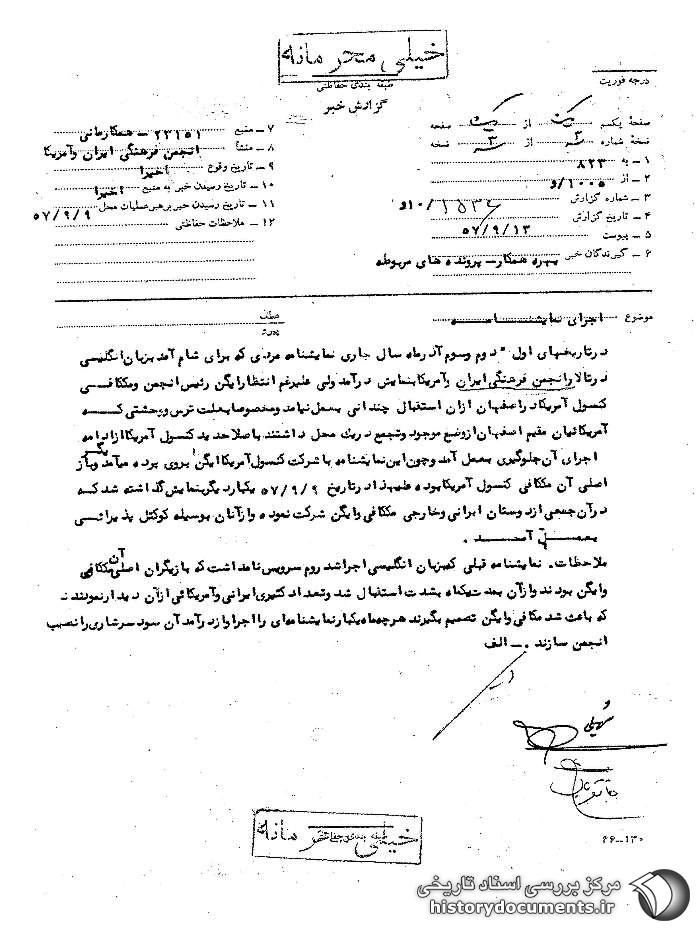 خیلی محرمانه
طبقه بندی حفاظتی
گزارش خبر
درجه فوریت
صفحهٔ یکم یک از یک صفحه
نسخهٔ شماره ۳ از ۳ نسخه
۱ – به ۸۲۳
۲ – از ۱۰۰۵/و
۳ – شماره گزارش ۱۵۳۶/۱۰و
۴ – تاریخ گزارش ۵۷/۹/۱۳
۵ – پیوست
۶ – گیرندگان خبر بهره همکار- پرونده های مربوطه
۷ – منبع ۲۲۱۵۱ – همکارمانی
۸ – منشأ انجمن فرهنگی ایران وآمریکا
۹ – تاریخ وقوع اخیرا
۱۰ – تاریخ رسیدن خبر به منبع اخیرا
۱۱ – تاریخ رسیدن خبر برهبر عملیات محل ۵۷/۹/۹
۱۲ – ملاحظات حفاظتی
موضوع اجرای نمایشنامه
عطف
پیرو
درتاریخهای اول – دوم وسوم آذرماه سال جاری نمایشنامه مردی که برای شام آمد بزبان انگلیسی
درتالار انجمن فرهنگی ایران وآمریکا بنمایش درآمد ولی علیرغم انتظار ایگن رئیس انجمن ومککافی
کنسول آمریکا در اصفهان ازان استقبال چندانی بعمل نیامد ومخصوصا بعلت ترس ووحشتی که
آمرکائیان مقیم اصفهان از وضع موجود وتجمع دریک محل داشتند باصلاحدید کنسول آمریکا ازادامه
اجرای آن جلوگیری بعمل آمد وچون این نمایشنامه با شرکت کنسول آمریکا ایگن بروی پرده میآمد وبازیگر
اصلی آن مککافی کنسول آمریکا بوده علیهذا درتاریخ ۵۷/۹/۹ یکبار دیگر بنمایش گذاشته شد که
درآن جمعی از دوستان ایرانی وخارجی مککافی وایگن شرکت نموده وازآنان بوسیله کوکتل پذیرائی
بعمل آمد .
ملاحظات. نمایشنامه قبلی که بزبان انگلیسی اجرا شد روم سرویس نام داشت که بازیگران اصلی آن مککافی
وایگن بودند وازآن بمدت یکماه بشدت استقبال شد وتعداد کثیری ایرانی وآمریکائی ازآن دیدار نمودند
که باعث شد مکافی وایگن تصمیم بگیرند هرچند ماه یکبار نمایشنامه ای را اجرا وازدرآمد آن سود سرشاری را نصیب
انجمن سازند . – الف
سهیلی
خیلی محرمانه
طبقه بندی حفاظتی
۶۶–۱۳۰
مرکز بررسی اسناد تاریخی
historydocuments.ir